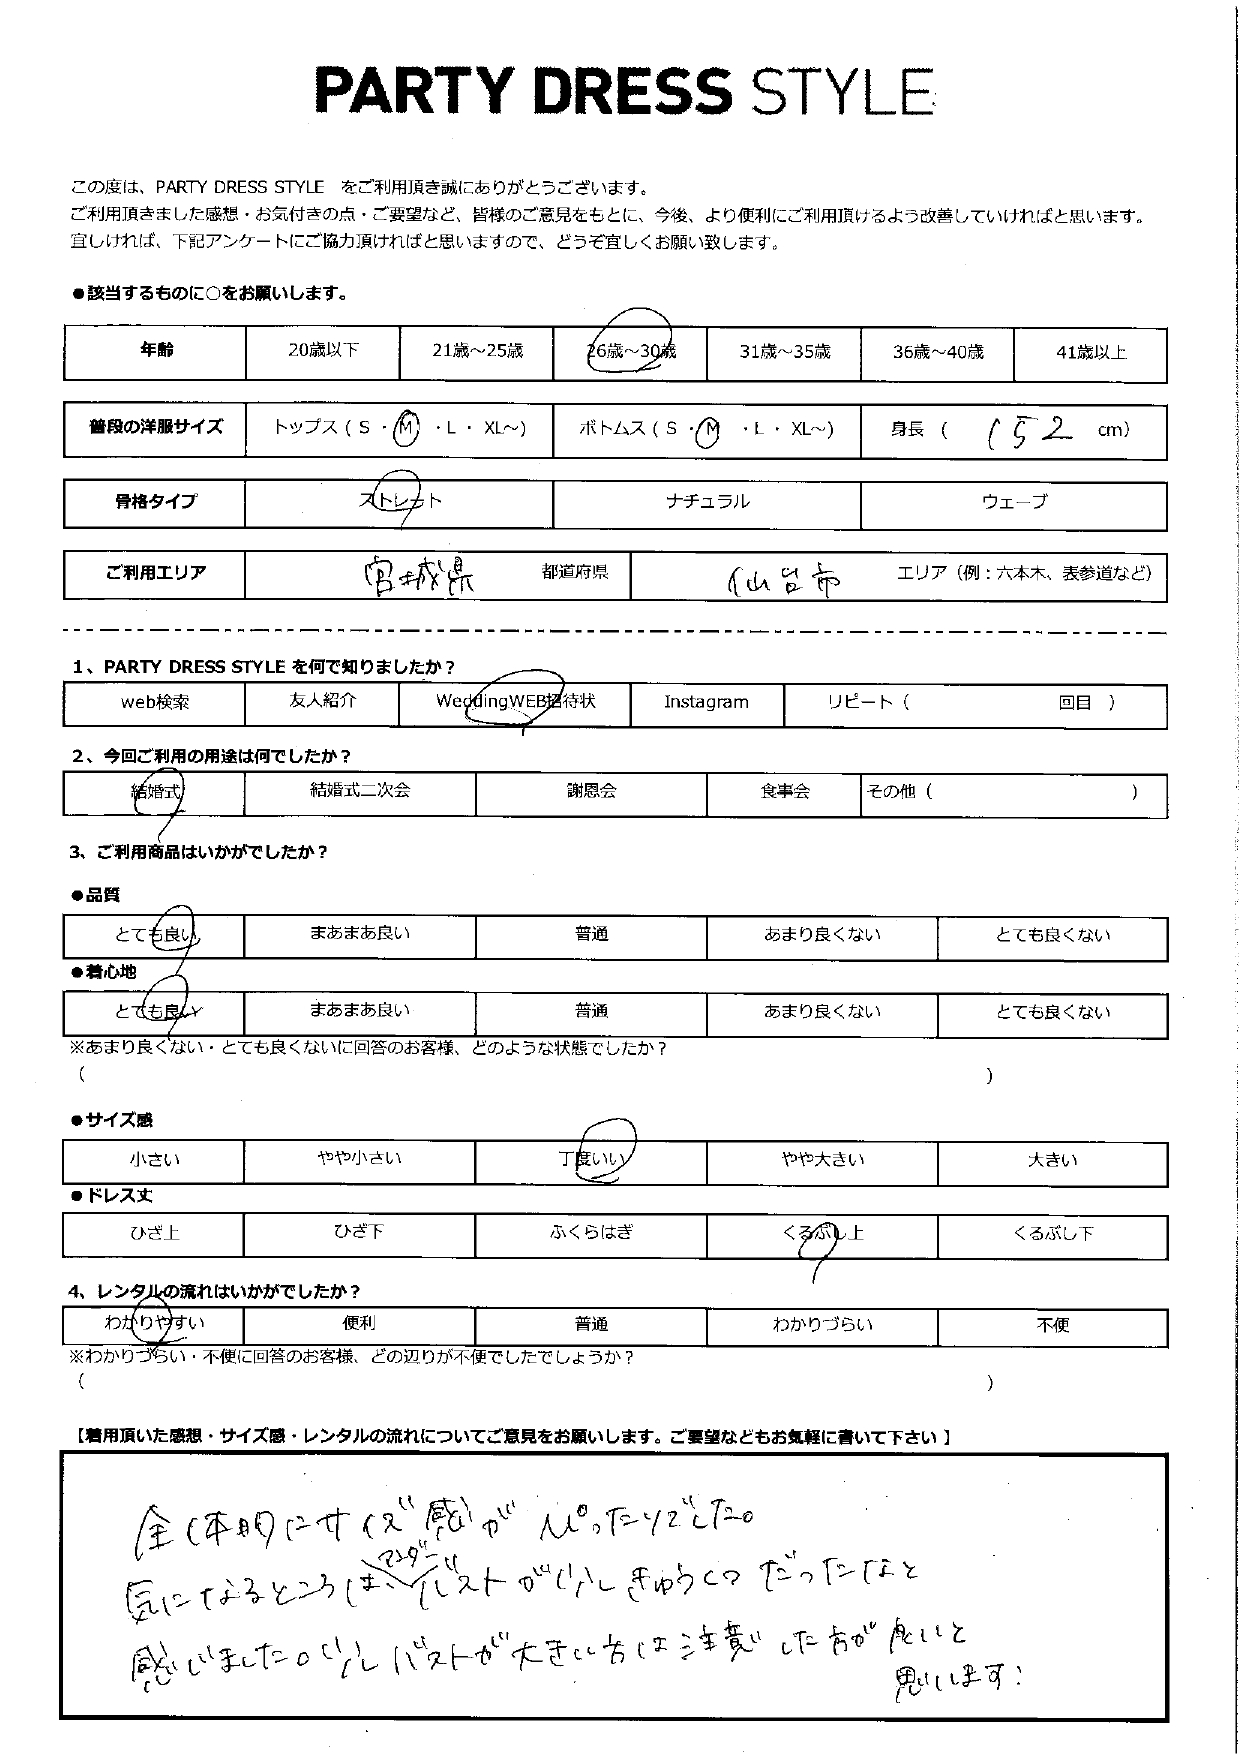 PARTY DRESS STYLE
この度は、PARTY DRESS STYLE をご利用頂き誠にありがとうございます。
ご利用頂きました感想・お気付きの点・ご要望など、皆様のご意見をもとに、今後、より便利にご利用頂けるよう改善していければと思います。
宜しければ、下記アンケートにご協力頂ければと思いますので、どうぞ宜しくお願い致します。
●該当するものに○をお願いします。
年齢 20歳以下 21歳～25歳 26歳～30歳 31歳～35歳 36歳～40歳 41歳以上
普段の洋服サイズ トップス ( S ・ M ・ L ・ XL～) ボトムス ( S ・ M ・ L ・ XL～) 身長 ( 152 cm)
骨格タイプ ストレート ナチュラル ウェーブ
ご利用エリア 宮城県 都道府県 仙台市 エリア（例：六本木、表参道など）
1、PARTY DRESS STYLE を何で知りましたか？
web検索 友人紹介 WeddingWEB招待状 Instagram リピート（ 回目 ）
2、今回ご利用の用途は何でしたか？
結婚式 結婚式二次会 謝恩会 食事会 その他（ ）
3、ご利用商品はいかがでしたか？
●品質
とても良い まあまあ良い 普通 あまり良くない とても良くない
●着心地
とても良い まあまあ良い 普通 あまり良くない とても良くない
※あまり良くない・とても良くないに回答のお客様、どのような状態でしたか？
（ ）
●サイズ感
小さい やや小さい 丁度いい やや大きい 大きい
●ドレス丈
ひざ上 ひざ下 ふくらはぎ くるぶし上 くるぶし下
4、レンタルの流れはいかがでしたか？
わかりやすい 便利 普通 わかりづらい 不便
※わかりづらい・不便に回答のお客様、どの辺りが不便でしたでしょうか？
（ ）
【着用頂いた感想・サイズ感・レンタルの流れについてご意見をお願いします。ご要望などもお気軽に書いて下さい 】
全体的にサイズ感がぴったりでした。
アンダー
気になるところは、バストが少しきゅうくつだったなと
感じました。少しバストが大きい方は注意した方が良いと
思いします!